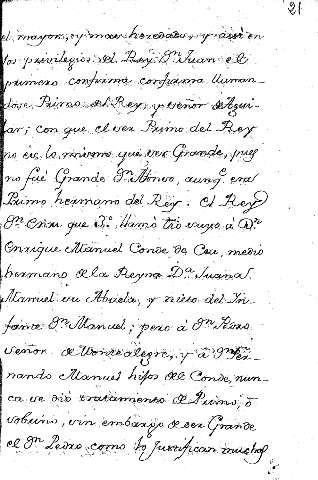 21
el mayor, y mas heredado, y assi en
los privilegios del Rey Dn Juan el
primero confirma confirma llaman-
dose Primo del Rey, y señor de Agui-
lar; con que el ser Primo del Rey
no es lo mismo que ser Grande, pues
no fué Grande Dn Alonso, aunqe era
Primo hermano del Rey. el Rey
Dn Enrique 3o llamó tio suyo á Dn
Enrique Manuel Conde de Cea, medio
hermano de la Reyna Da Juana
Manuel su Abuela, y nieto del In-
fante Dn Manuel; pero á Dn Pedro
señor de Montealegre, y á Dn Fer-
nando Manuel hijos del Conde, nun-
ca se dió tratamiento de Primo, ó
sobrino, sin embargo de ser Grande
el Dn Pedro, como lo justifican muchos